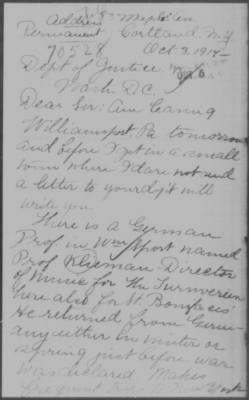 Address Maple
Permanent Cortland, N.Y.
70528 Oct 3, 1917
Dept of Justice
Wash D.C.
Dear Sir: Am leaving
Williamsport, Pa tomorrow
and before I get in a small
town where I dare not send
a letter to your dept will
write you
There is a German
Prof in Wmsport named
Prof Klieman-Director
of Music for the Turnverein
here also for St. Boniface
He returned from Germ-
any either in winter or
spring just before war
was declared Makes
frequent trips New York